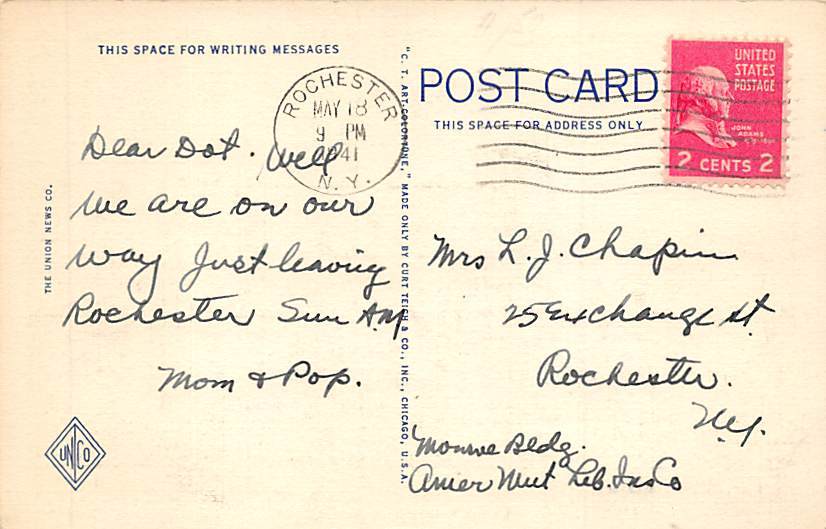 THIS SPACE FOR WRITING MESSAGES
Dear Dot. Well
We are on our
way Just leaving
Rochester Sun A.M.
Mom & Pop.
THE UNION NEWS CO.
UN CO
"C. T. ART-COLORTONE," MADE ONLY BY CURT TEICH & CO., INC., CHICAGO, U.S.A.
ROCHESTER
MAY 18
9 PM
1941
N. Y.
POST CARD
THIS SPACE FOR ADDRESS ONLY
UNITED
STATES
POSTAGE
JOHN
ADAMS
2 CENTS 2
Mrs L. J. Chapin
25 Exchange St.
Rochester.
N.Y.
Monroe Bldg.
Amer Mut Leb. Ins Co